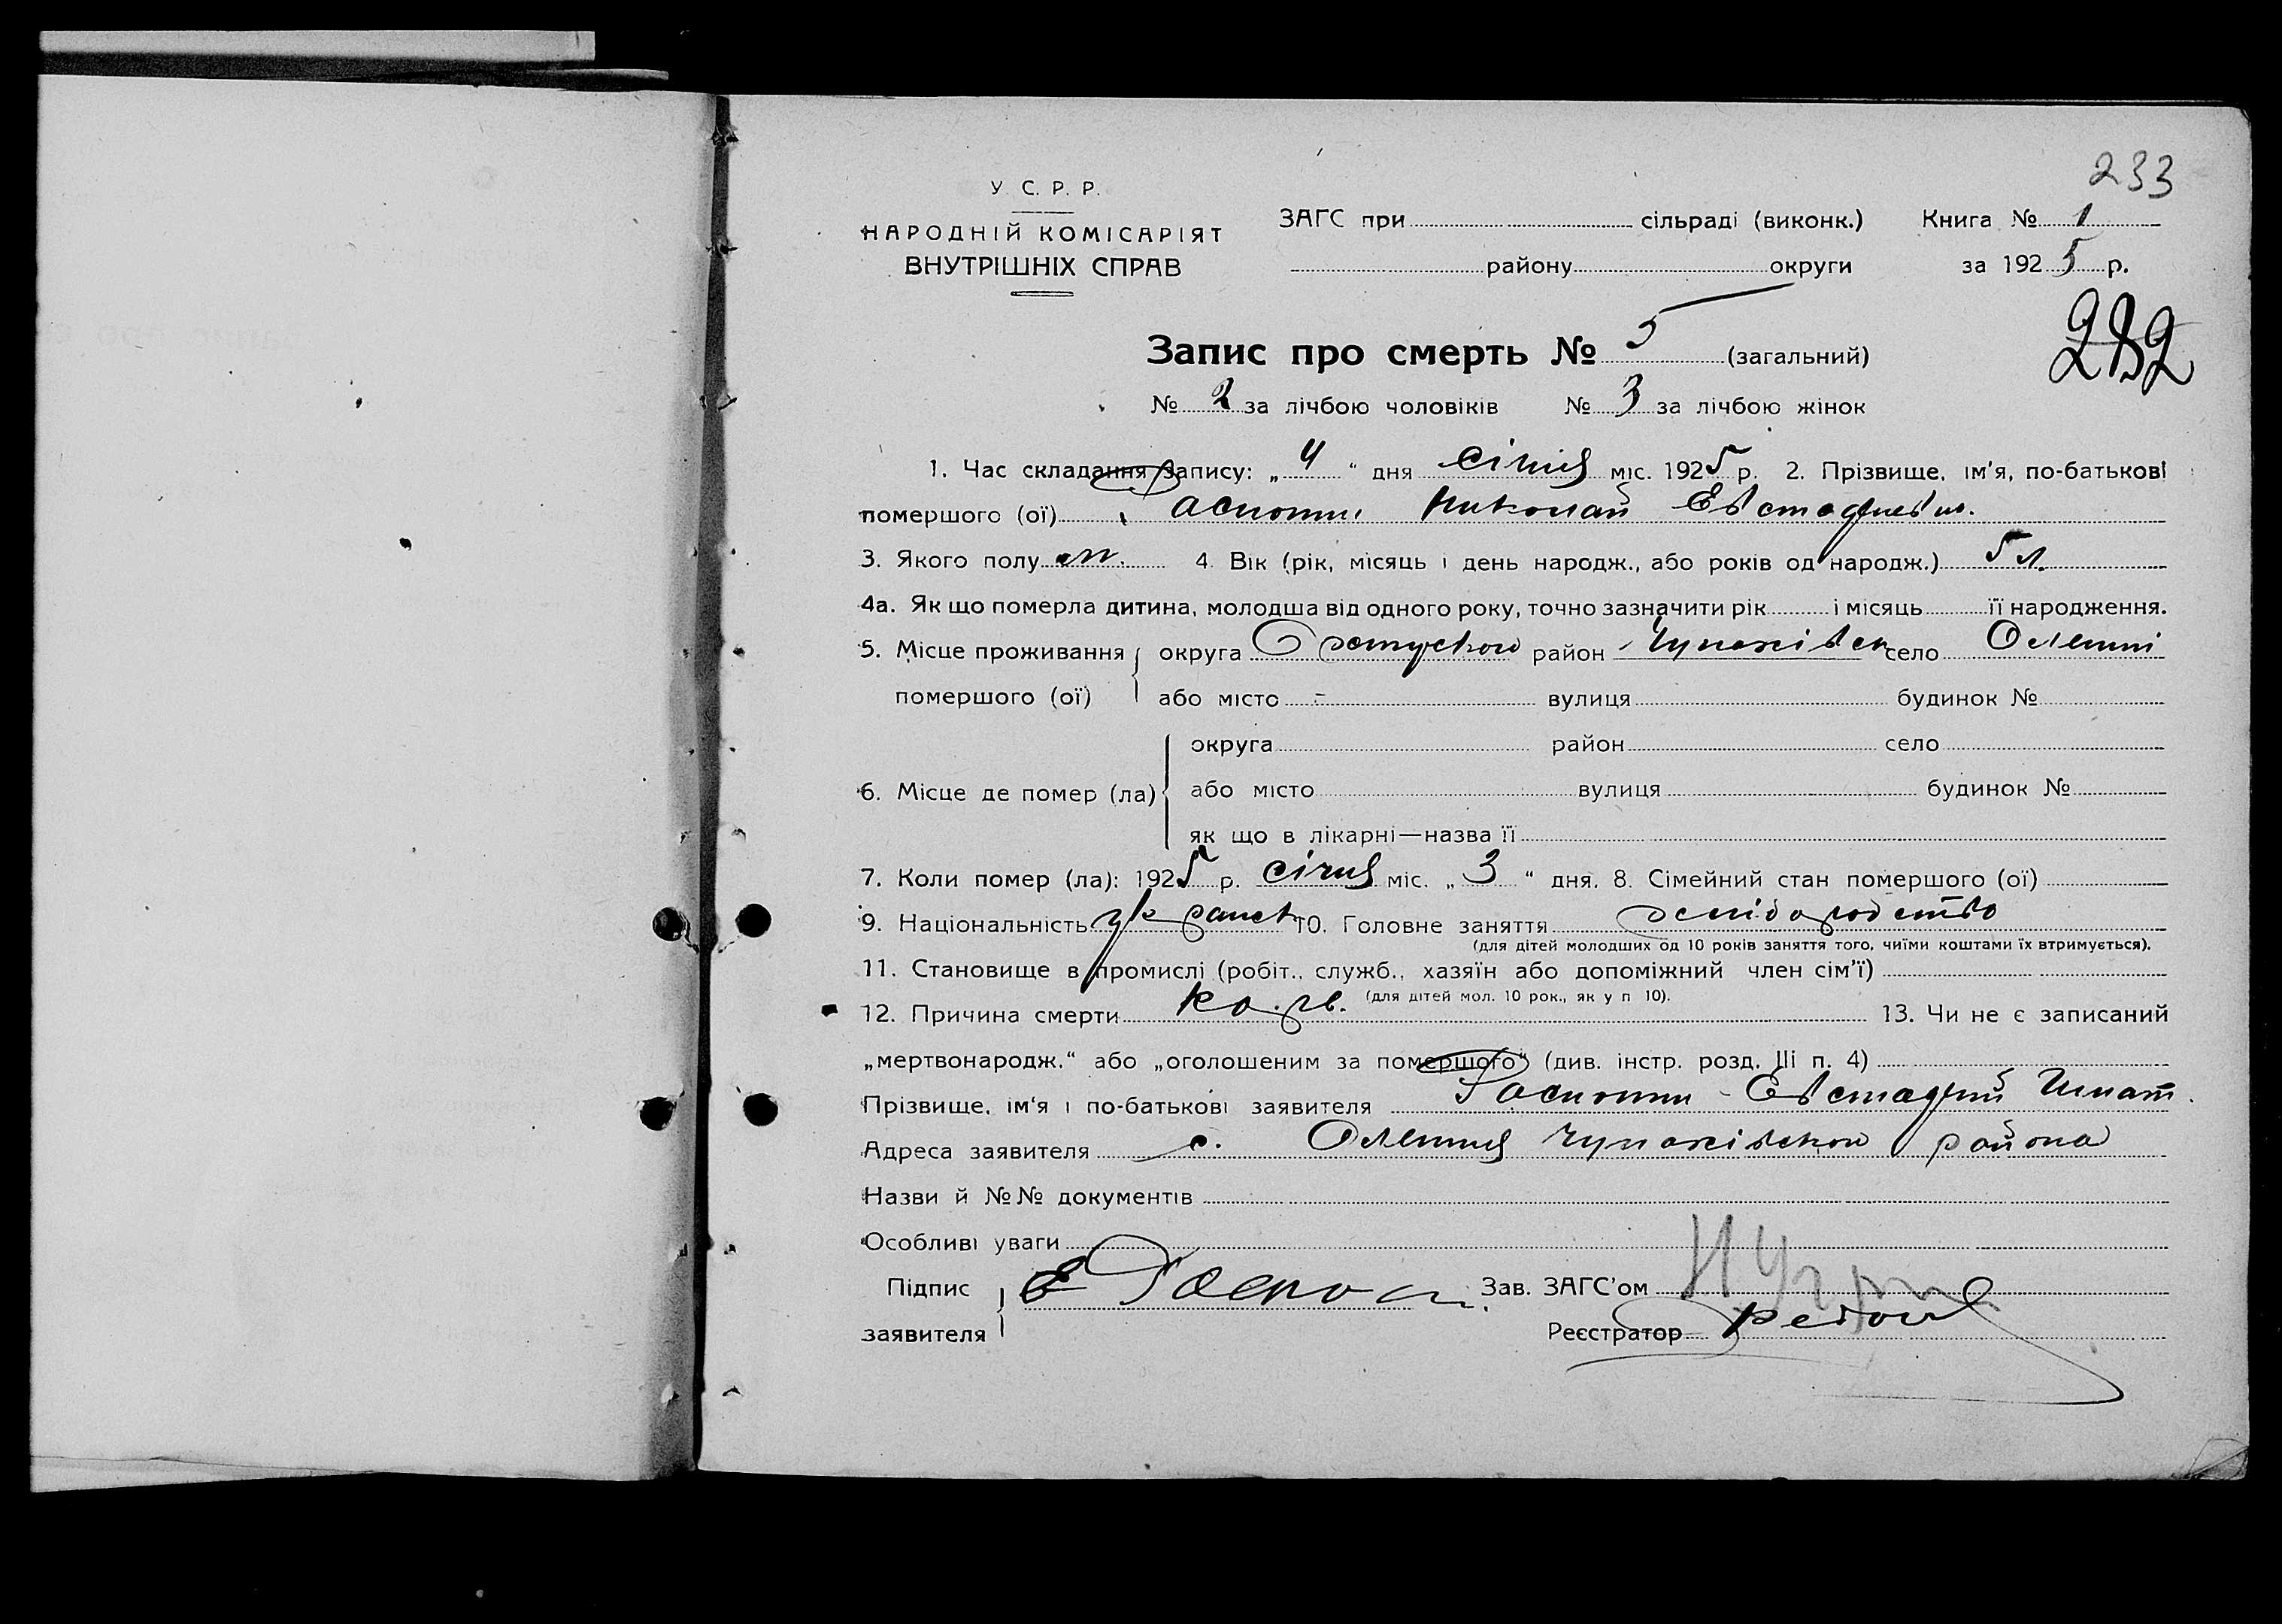 233
У С. Р. Р.
НАРОДНІЙ КОМІСАРІЯТ
ВНУТРІШНІХ СПРАВ
ЗАГС при сільраді (виконк.) Книга № 1
району округи за 1925 р.
282
Запис про смерть № 5 (загальний)
№ 2 за лічбою чоловіків № 3 за лічбою жінок
1. Час складання запису: „ 4 “ дня січня міс. 1925 р. 2. Прізвище, ім'я, по-батькові
помершого (ої) Николай
3. Якого полу м. 4. Вік (рік, місяць і день народж., або років од народж.) 5 л.
4а. Як що померла дитина, молодша від одного року, точно зазначити рік і місяць її народження.
5. Місце проживання округа район село
помершого (ої) або місто - вулиця будинок №
округа район село
6. Місце де помер (ла) або місто вулиця будинок №
як що в лікарні—назва її
7. Коли помер (ла): 1925 р. січня міс. „ 3 “ дня. 8. Сімейний стан помершого (ої)
9. Національність 10. Головне заняття
(для дітей молодших од 10 років заняття того, чиїми коштами їх втримується).
11. Становище в промислі (робіт., служб., хазяїн або допоміжний член сім'ї)
(для дітей мол. 10 рок., як у п 10).
12. Причина смерти 13. Чи не є записаний
„мертвонародж.“ або „оголошеним за помершого“ (див. інстр. розд. III п. 4)
Прізвище, ім'я і по-батькові заявителя Евстафий Игнат.
Адреса заявителя с. района
Назви й №№ документів
Особливі уваги
Підпис Зав. ЗАГС'ом
заявителя Реєстратор